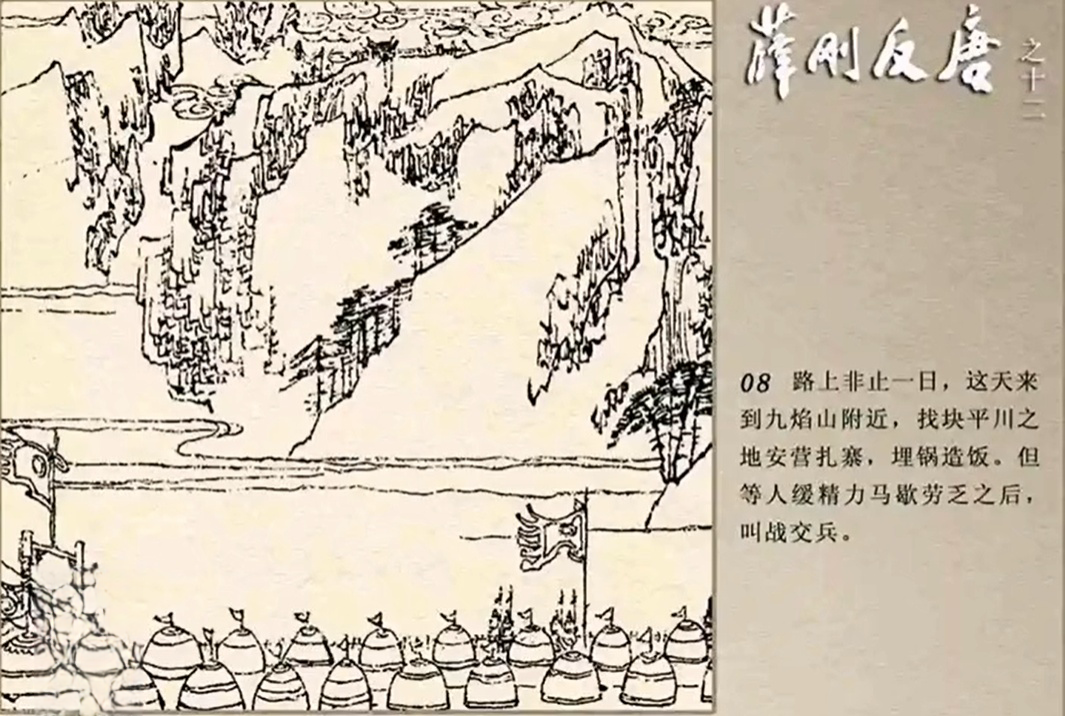 薛刚反唐
之十二
08 路上非止一日，这天来
到九焰山附近，找块平川之
地安营扎寨，埋锅造饭。但
等人缓精力马歇劳乏之后，
叫战交兵。